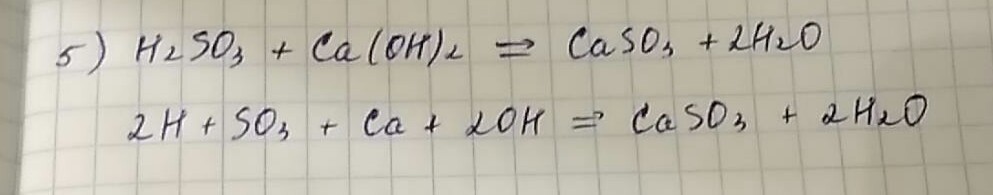 5) H₂SO₃ + Ca(OH)₂ = CaSO₃ + 2H₂O
2H + SO₃ + Ca + 2OH = CaSO₃ + 2H₂O